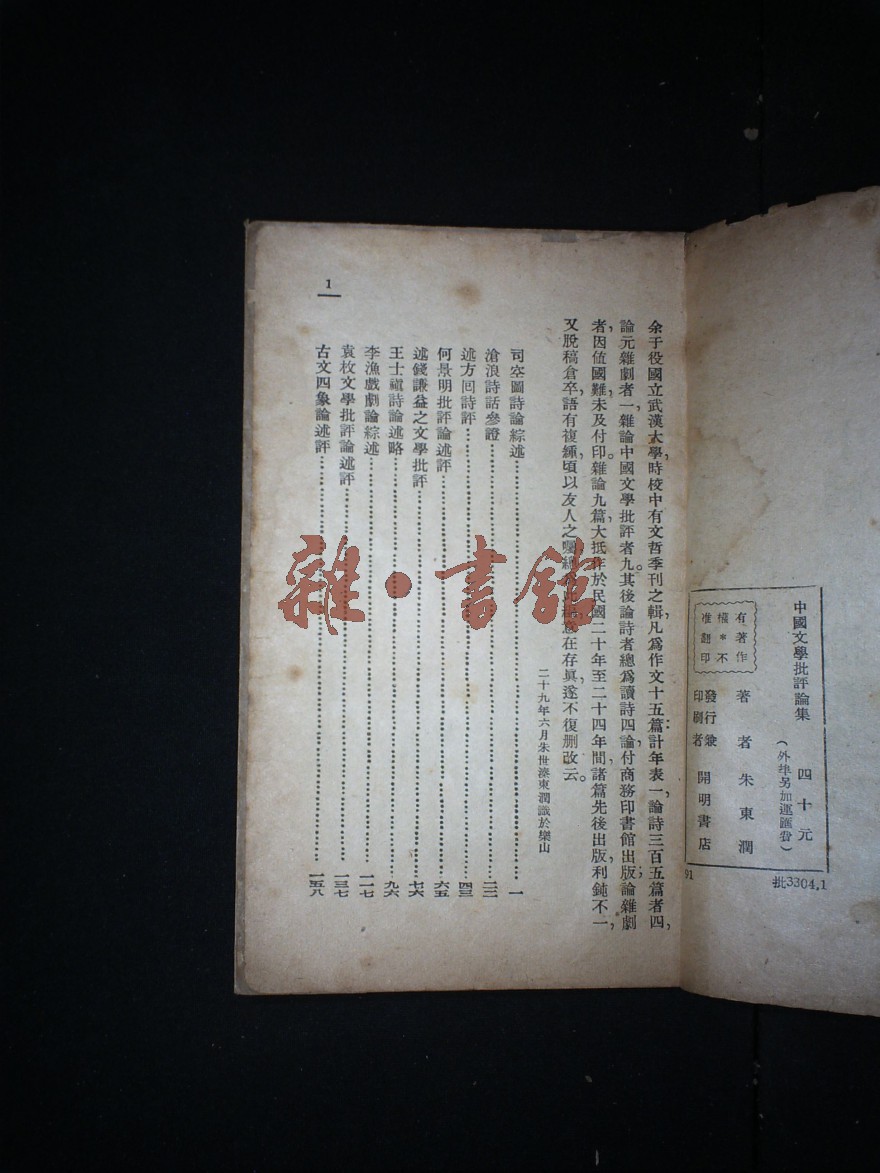 中國文學批評論集
四十元
(外埠另加運匯費)
著者 朱東潤
發行兼
印刷者
開明書店
有著作
權*不
准翻印
91
批3304.1
余于役國立武漢大學時校中有文哲季刊之輯,凡爲作文十五篇:計年表一,論詩三百五篇者四,
論元雜劇者一,雜論中國文學批評者九。其後論詩者總爲讀詩四論,付商務印書館出版;論雜劇
者,因值國難,未及付印。雜論九篇,大抵作於民國二十年至二十四年間,諸篇先後出版,利鈍不一,
又脫稿倉卒,語有複緟,頃以友人之囑,意在存眞,遂不復删改云。
二十九年六月朱世溱東潤識於樂山
司空圖詩論綜述 一
滄浪詩話參證 二二
述方回詩評 四三
何景明批評論述評 六五
述錢謙益之文學批評 七六
王士禛詩論述略 九六
李漁戲劇論綜述 一一七
袁枚文學批評論述評 一三七
古文四象論述評 一五八
1
雜·書館